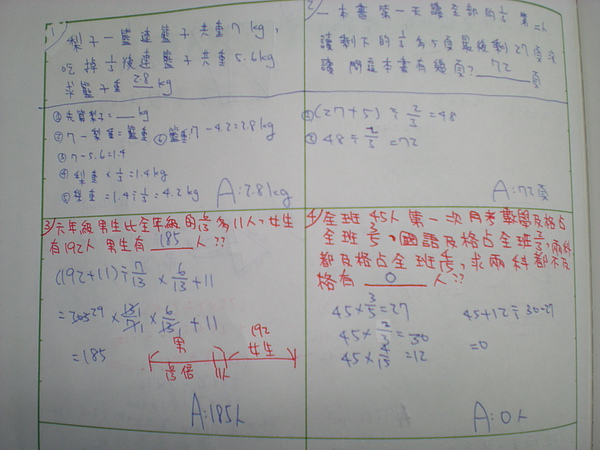 1)
梨子一籃連籃子共重7kg,
吃掉1/3後連籃子共重5.6kg
求籃子重2.8kg
①先算梨子=__kg
②7-梨重=籃重 ⑥籃重7-4.2=2.8kg
③7-5.6=1.4
④梨重×1/3=1.4kg
⑤梨重=1.4÷1/3=4.2kg
A:2.8kg
2
一本書第一天讀全部的1/3第二天
讀剩下的1/3多5頁最後剩27頁沒
讀問這本書有幾頁?72頁
①(27+5)÷2/3=48
②48÷2/3=72
A:72頁
3)六年級男生比全年級的6/13多11人,女生
有192人男生有185人??
(192+11)÷7/13×6/13+11
=203 29×13/7 1×6/13 1+11
=185
男 192
女生
6/13倍 11人
A:185人
4)全班45人第一次月考數學及格占
全班3/5,國語及格占全班2/3,兩科
都及格占全班4/15,求兩科都不及
格有0人??
45×3/5=27
45×2/3=30
45×4/15=12
45+12÷30-27
=0
A:0人